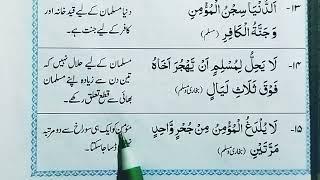 ۱۳- اَلدُّنْیَا سِجْنُ الْمُؤْمِنِ
وَجَنَّةُ الْکَافِرِ (مسلم)
دنیا مسلمان کے لیے قید خانہ اور
کافر کے لیے جنت ہے۔
۱۴- لَا یَحِلُّ لِمُسْلِمٍ اَنْ یَّهْجُرَ اَخَاہُ
فَوْقَ ثَلَاثِ لَیَالٍ (بخاری و مسلم)
مسلمان کے لیے حلال نہیں کہ
تین دن سے زیادہ اپنے مسلمان
بھائی سے قطع تعلق رکھے۔
۱۵- لَا یُلْدَغُ الْمُؤْمِنُ مِنْ جُحْرٍ وَّاحِدٍ
مَرَّتَیْنِ (بخاری و مسلم)
مؤمن کو ایک ہی سوراخ سے دو مرتبہ
ڈسا جاسکتا۔